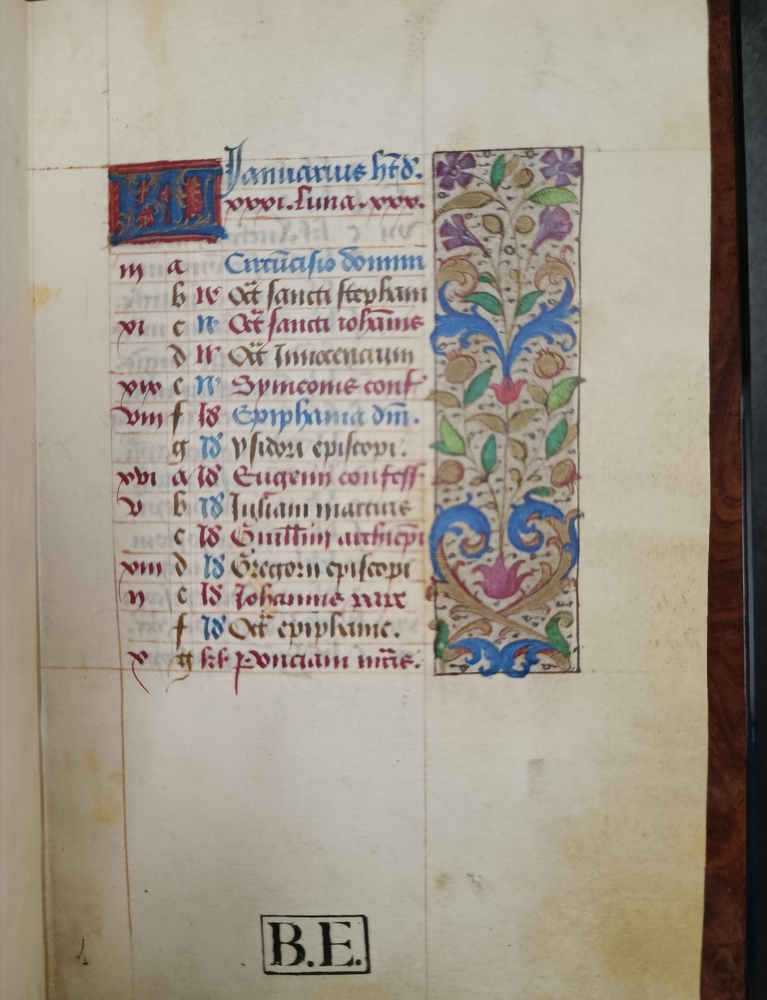 KL Januarius ht̄ d̄.
xxxi. luna. xxx.
iii a Circūcisio domini
b iv Oct̄ sancti stephani
xi c iv Oct̄ sancti iohānis
d iv Oct̄ Innocencium
xix e N Symeonis conf
viii f id Epiphania dm̄.
g id ysidori episcopi.
xvi a id Eugenii confess.
v b id Juliani martiris
c id Guill̄mi archiep̄i
xiii d id Gregorii episcopi
ii e id Johannis pape
f id Oct̄ epiphanie.
x g kl Ponciani m̄ris.
B.E.
1